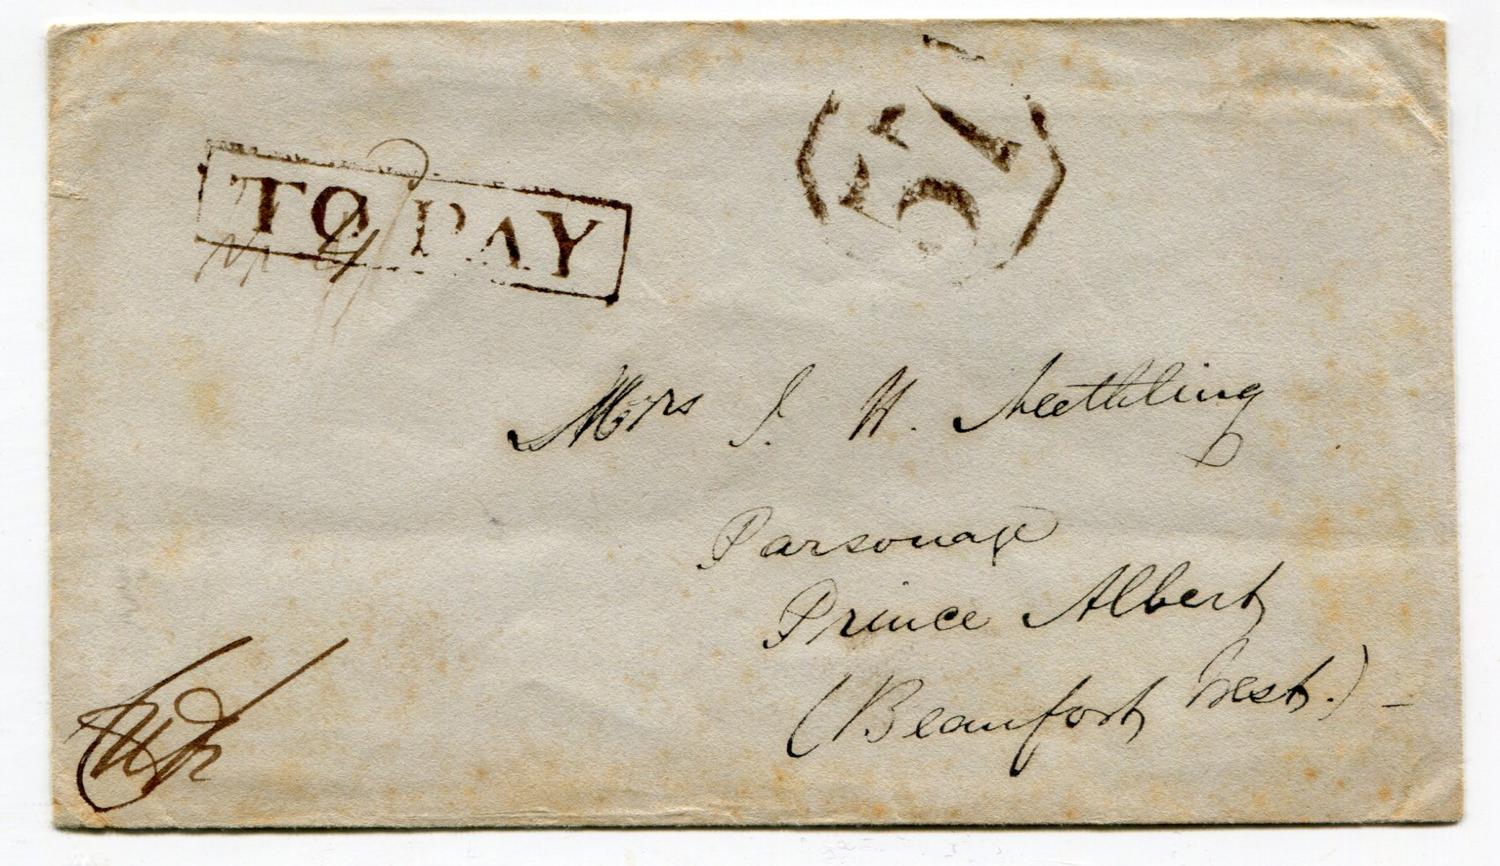 TO PAY
57
Mrs J. H. Neethling
Parsonage
Prince Albert
(Beaufort West.) –